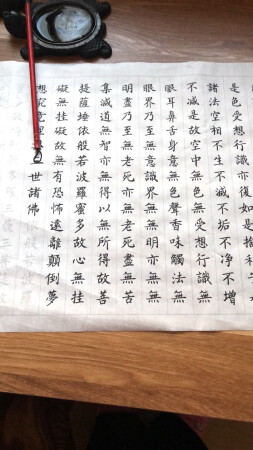 是色受想行識亦復如是捨利
諸法空相不生不滅不垢不净不增
不減是故空中無色無受想行識無
眼耳鼻舌身意無色聲香味觸法無
眼界乃至無意識界無無明亦無無
明盡乃至無老死亦無老死盡無苦
集滅道無智亦無得以無所得故菩
提薩埵依般若波羅蜜多故心無挂
礙無挂礙故無有恐怖遠離顛倒夢
想究竟涅世諸佛般若